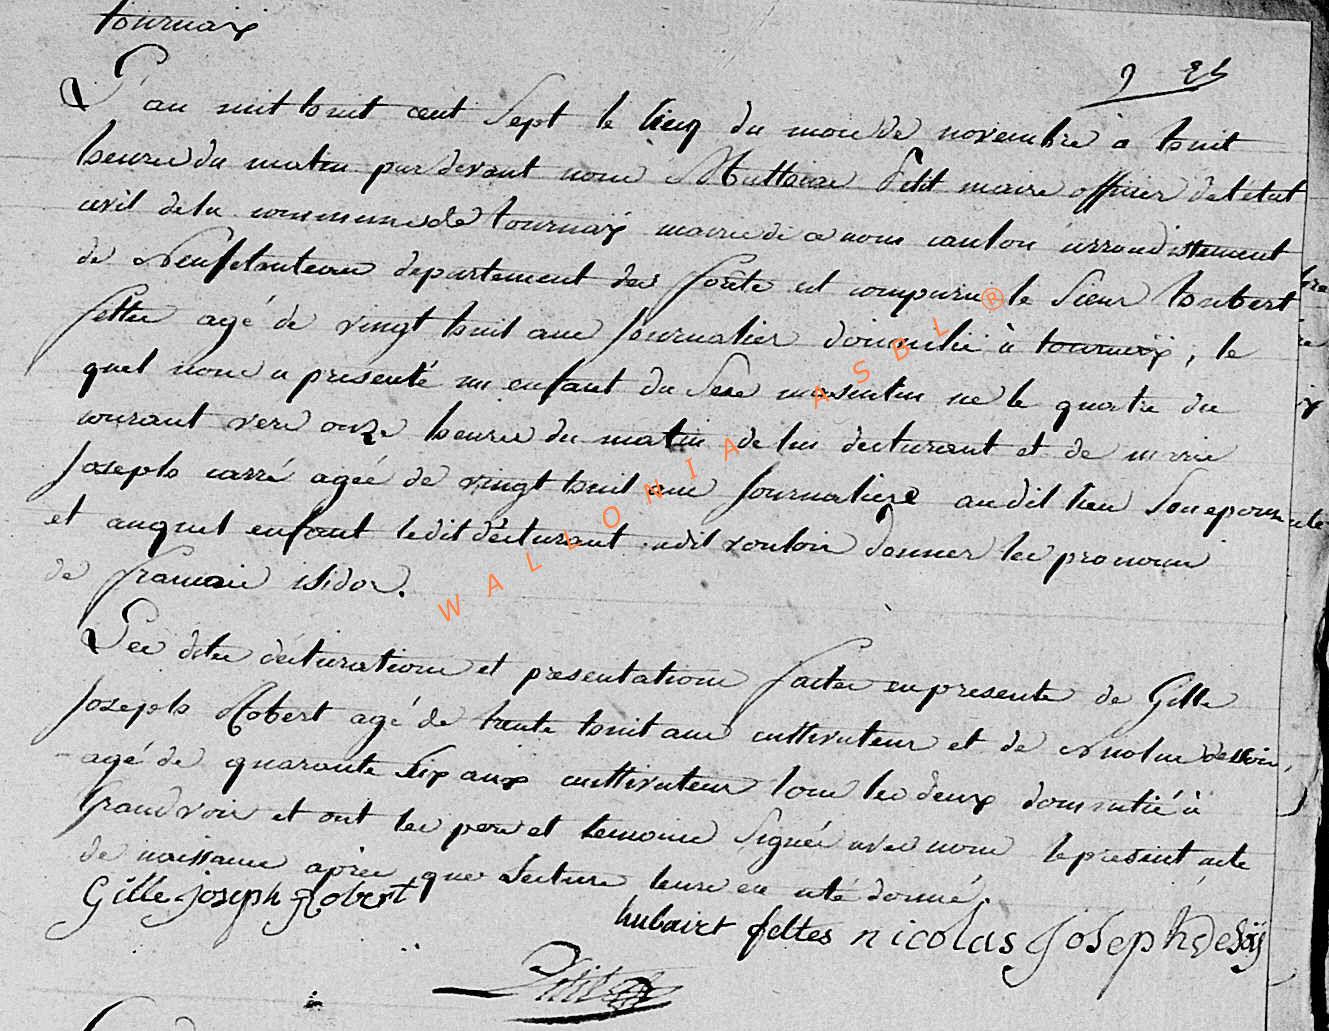 tournaix
L'an mil huit cent Sept le Cinq du mois de novembre a huit
heures du matin par devant nous Petit maire officier de letat
civil de la commune de tournaix mairie de ce nom canton arrondistement
de Neufchateau departement des forêts est comparu le Sieur hubert
feltes agé de vingt huit ans Journalier domicilié à tournaix, le
quel nous a presenté un enfant du Sexe masculin ne le quatre du
courant vers onze heures du matin de lui declarant et de marie
Joseph carré agée de vingt huit ans Journaliere au dit lieu Son epouse
et auquel enfant ledit déclarant adit vouloir donner les pronoms
de francois isidor.
Les dites déclarations et presentations faites en presente de Gille
Joseph Robert agé de trente huit ans cultivateur et de
agé de quarante Six ans cultivateur tous les deux domicilié à
Grandvoir et ont les pere et temoins Signés avec nous le present acte
de naissance après que lecture leurs en até donné.
Gille Joseph Robert
hubairt feltes nicolas Joseph desoÿ
Petit
WALLONIA ASBL ®